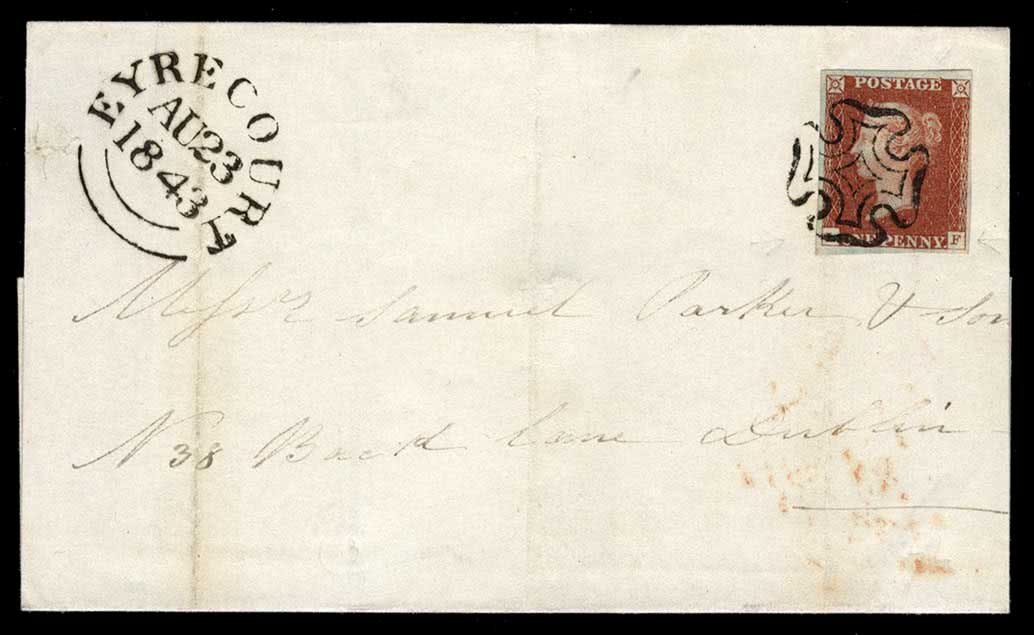 EYRECOURT
AU 23
1843
POSTAGE
ONE PENNY
F
Messrs Samuel Parker & Son
N 38 Back Lane Dublin